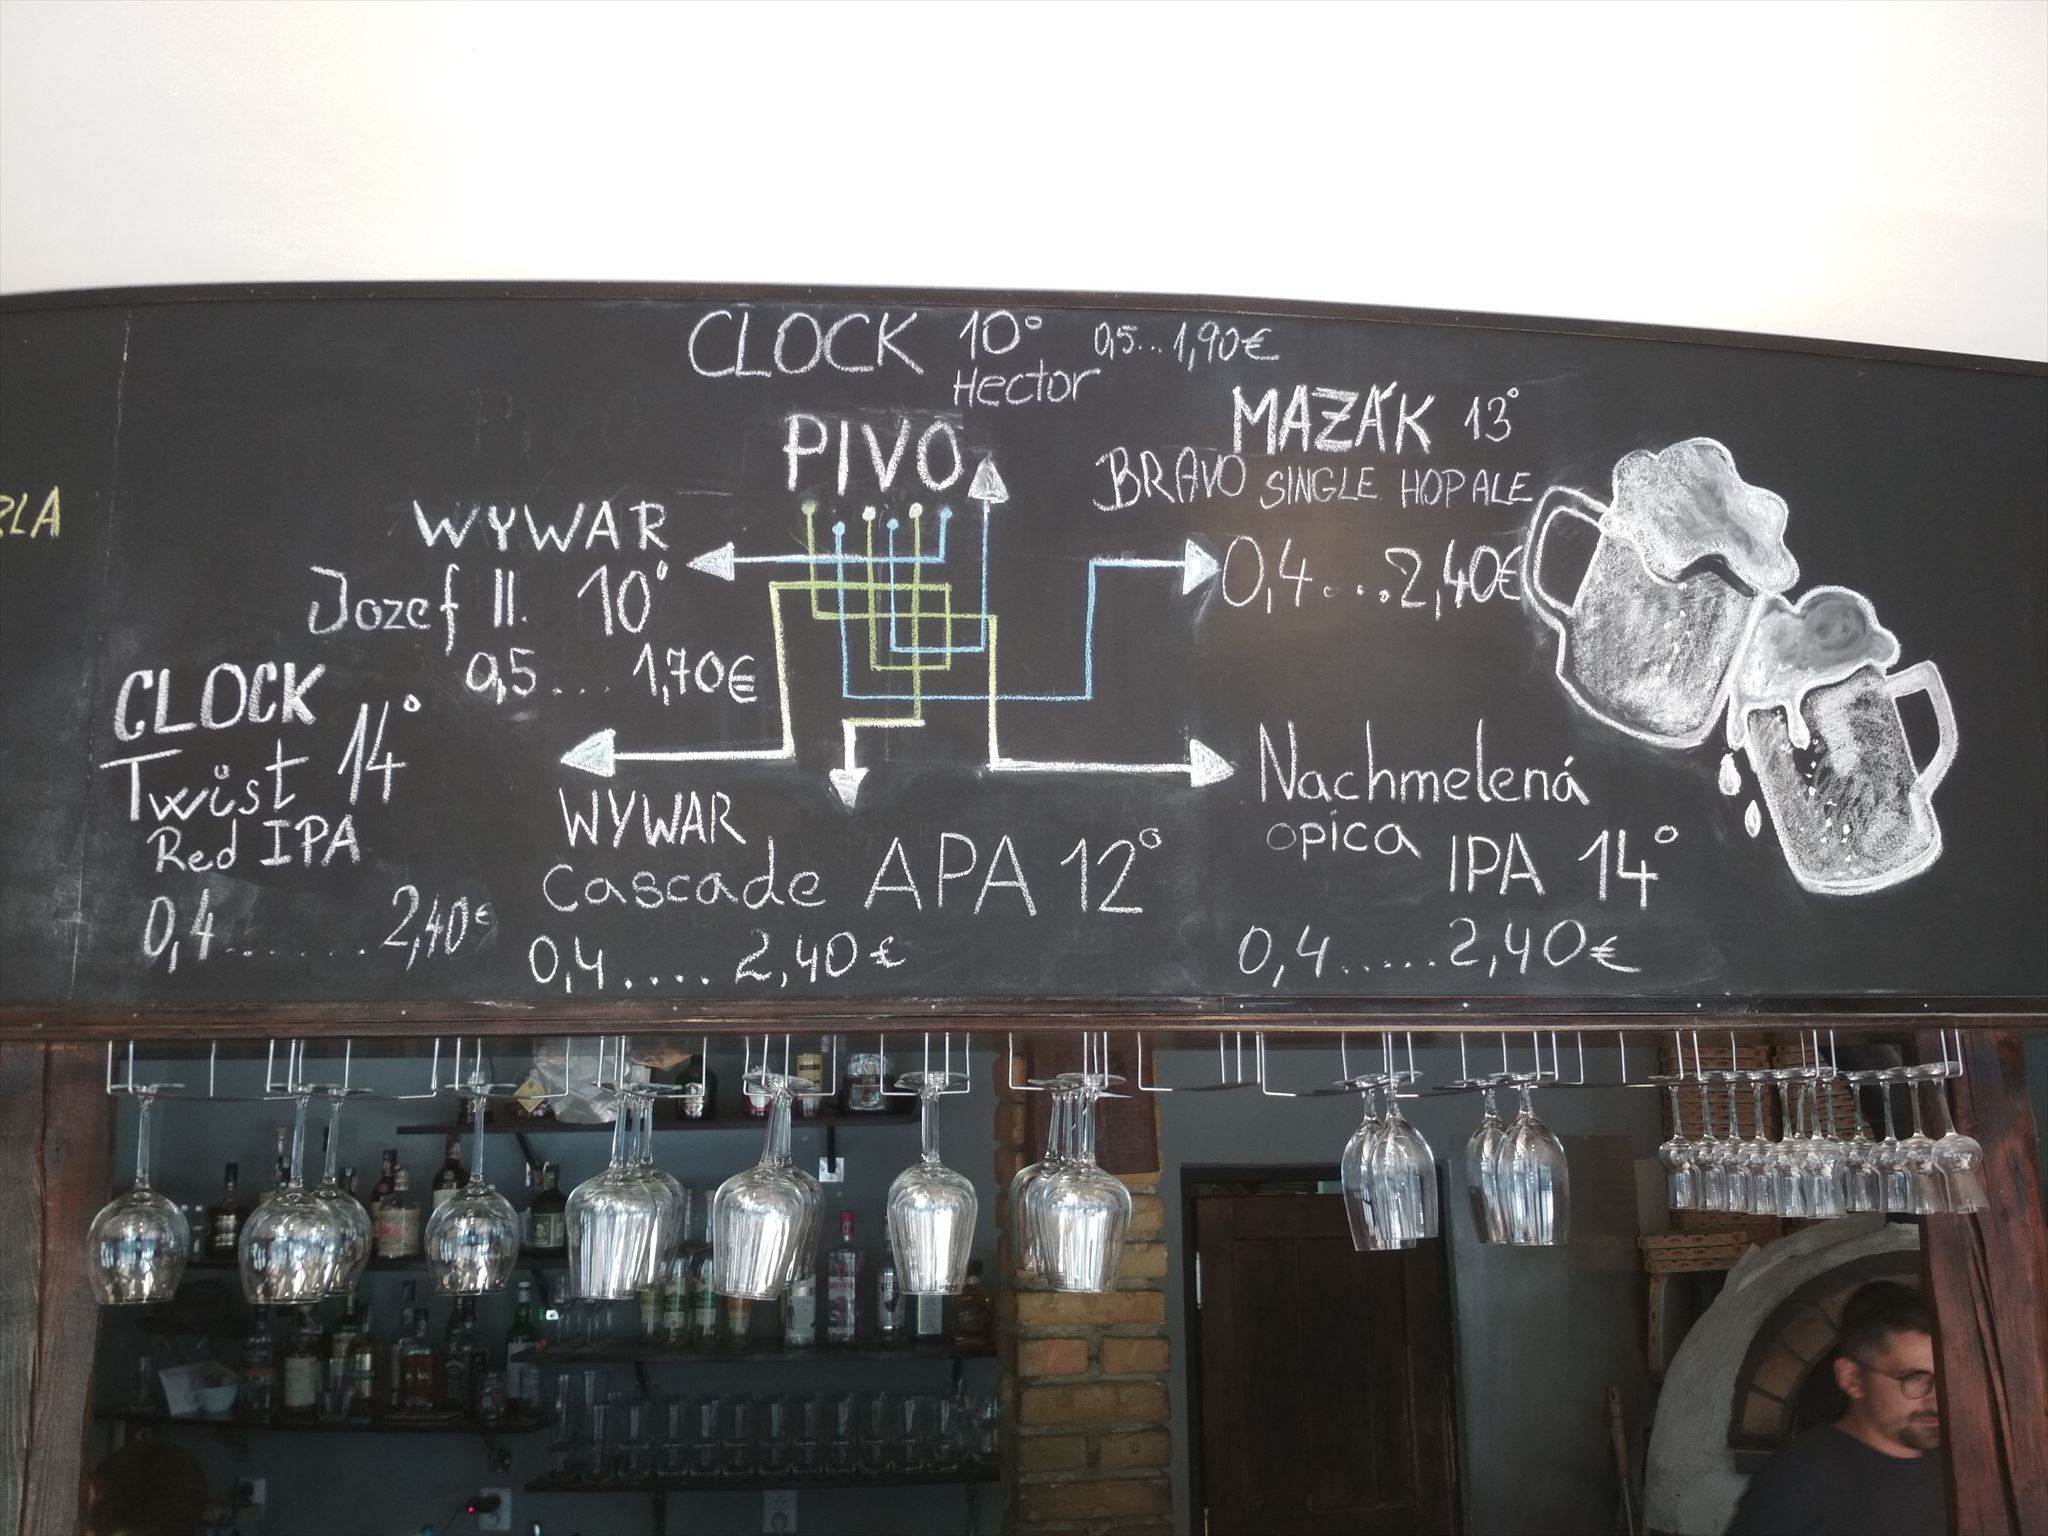 CLOCK 10° 0,5...1,90€
Hector
PIVO
MAZÁK 13°
BRAVO SINGLE HOP ALE
0,4....2,40€
WYWAR
Jozef II. 10°
0,5.... 1,70€
CLOCK
Twist 14°
Red IPA
0,4.......2,40€
WYWAR
Cascade APA 12°
0,4.... 2,40€
Nachmelená
opica IPA 14°
0,4.....2,40€